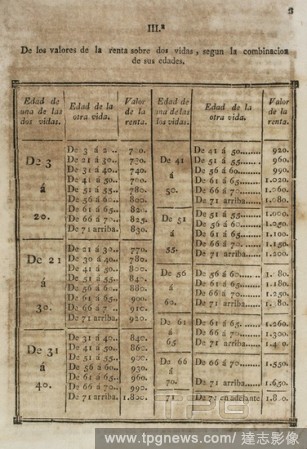 III.ª
De los valores de la renta sobre dos vidas, segun la combinacion
de sus edades.
Edad de una de las dos vidas. Edad de la otra vida. Valor de la renta. Edad de una de las dos vidas. Edad de la otra vida. Valor de la renta.
De 3 á 20.
De 21 á 30. 730.
De 31 á 40. 740.
De 41 á 50.
De 51 á 55. 780.
De 56 á 60. 800.
De 61 á 65.
De 66 á 70. 825.
De 71 arriba. 830.
De 21 á 30.
De 21 á 30. 770.
De 30 á 40. 780.
De 41 á 50. 800.
De 51 á 55.
De 56 á 60. 880.
De 61 á 65. 900.
De 66 á 70. 910.
De 71 arriba. 920.
De 31 á 40.
De 31 á 40. 840.
De 41 á 50. 860.
De 51 á 55. 900.
De 56 á 60. 930.
De 61 á 65. 960.
De 66 á 70. 990.
De 71 arriba.
De 41 á 50.
De 41 á 50. 920.
De 51 á 55. 960.
De 56 á 60. 990.
De 61 á 65. 1.020.
De 66 á 70. 1.060.
De 71 arriba. 1.080.
De 51 á 55.
De 51 á 55. 1.000.
De 56 á 60. 1.050.
De 61 á 65. 1.100.
De 66 á 70. 1.150.
De 71 arriba. 1.200.
De 56 á 60.
De 56 á 60.
De 61 á 65. 1.200.
De 66 á 70. 1.250.
De 71 arriba.
De 61 á 65
De 61 á 65. 1.260.
De 66 á 70. 1.300.
De 71 arriba.
De 66 á 70.
De 66 á 70. 1.550.
De 71 arriba. 1.650.
71.
De 71 en adelante. 1.800.
TPG
www.tpgnews.com/ 達志影像